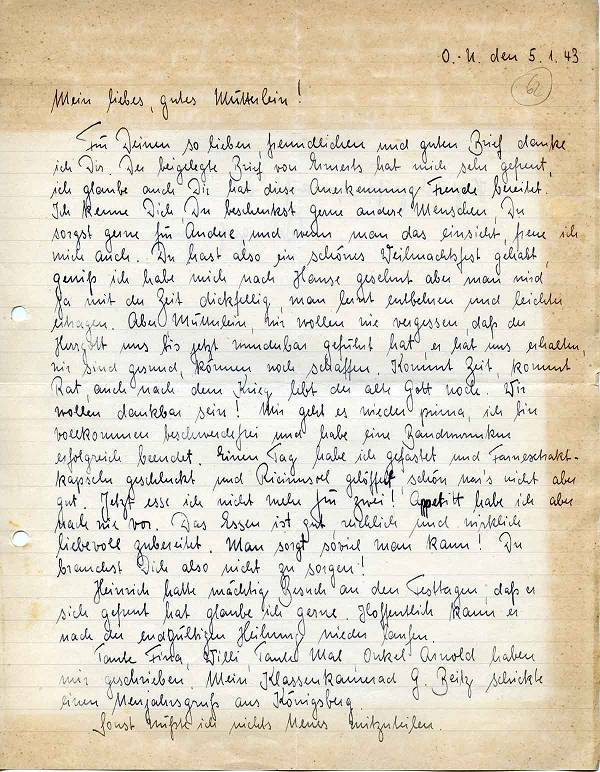 O.-U. den 5.1.43
62
Mein liebes, gutes Mütterlein!
Für Deinen so lieben, freundlichen und guten Brief danke
ich Dir. Der beigelegte Brief von hat mich sehr gefreut,
ich glaube auch Dir hat diese Anerkennung Freude bereitet.
Ich kenne Dich, Du beschenkst gerne andere Menschen, Du
sorgst gerne für Andre, und wenn man das einsieht, freue ich
mich auch. Du hast also ein schönes Weihnachtsfest gehabt,
gewiß ich habe mich nach Hause gesehnt aber man wird
ja mit der Zeit dickfellig, man lernt entbehren und leichter
ertragen. Aber Mütterlein, wir wollen nie vergessen, daß der
Herrgott uns bis jetzt wunderbar geführt hat, er hat uns erhalten,
wir sind gesund, können noch schaffen. Kommt Zeit, kommt
Rat, auch nach dem Krieg lebt der alte Gott noch. Wir
wollen dankbar sein! Mir geht es wieder prima, ich bin
vollkommen beschwerdefrei und habe eine Bandwurmkur
erfolgreich beendet. Einen Tag habe ich gefastet und Farnextrakt-
kapseln geschluckt und Ricinusoel gelöffelt, schön war's nicht aber
gut. Jetzt esse ich nicht mehr für zwei! Appetitt habe ich aber
nach wie vor. Das Essen ist gut, reichlich und wirklich
liebevoll zubereitet. Man sorgt soviel man kann! Du
brauchst Dich also nicht zu sorgen!
Heinrich hatte mächtig Besuch an den Festtagen, daß er
sich gefreut hat glaube ich gerne. Hoffentlich kann er
nach der endgültigen Heilung wieder laufen.
Tante Fina, Willi, Tante Mal, Onkel Arnold haben
mir geschrieben. Mein Klassenkamerad G. Beitz schickte
einen Neujahrsgruß aus Königsberg.
Sonst wüßte ich nichts Neues mitzuteilen.